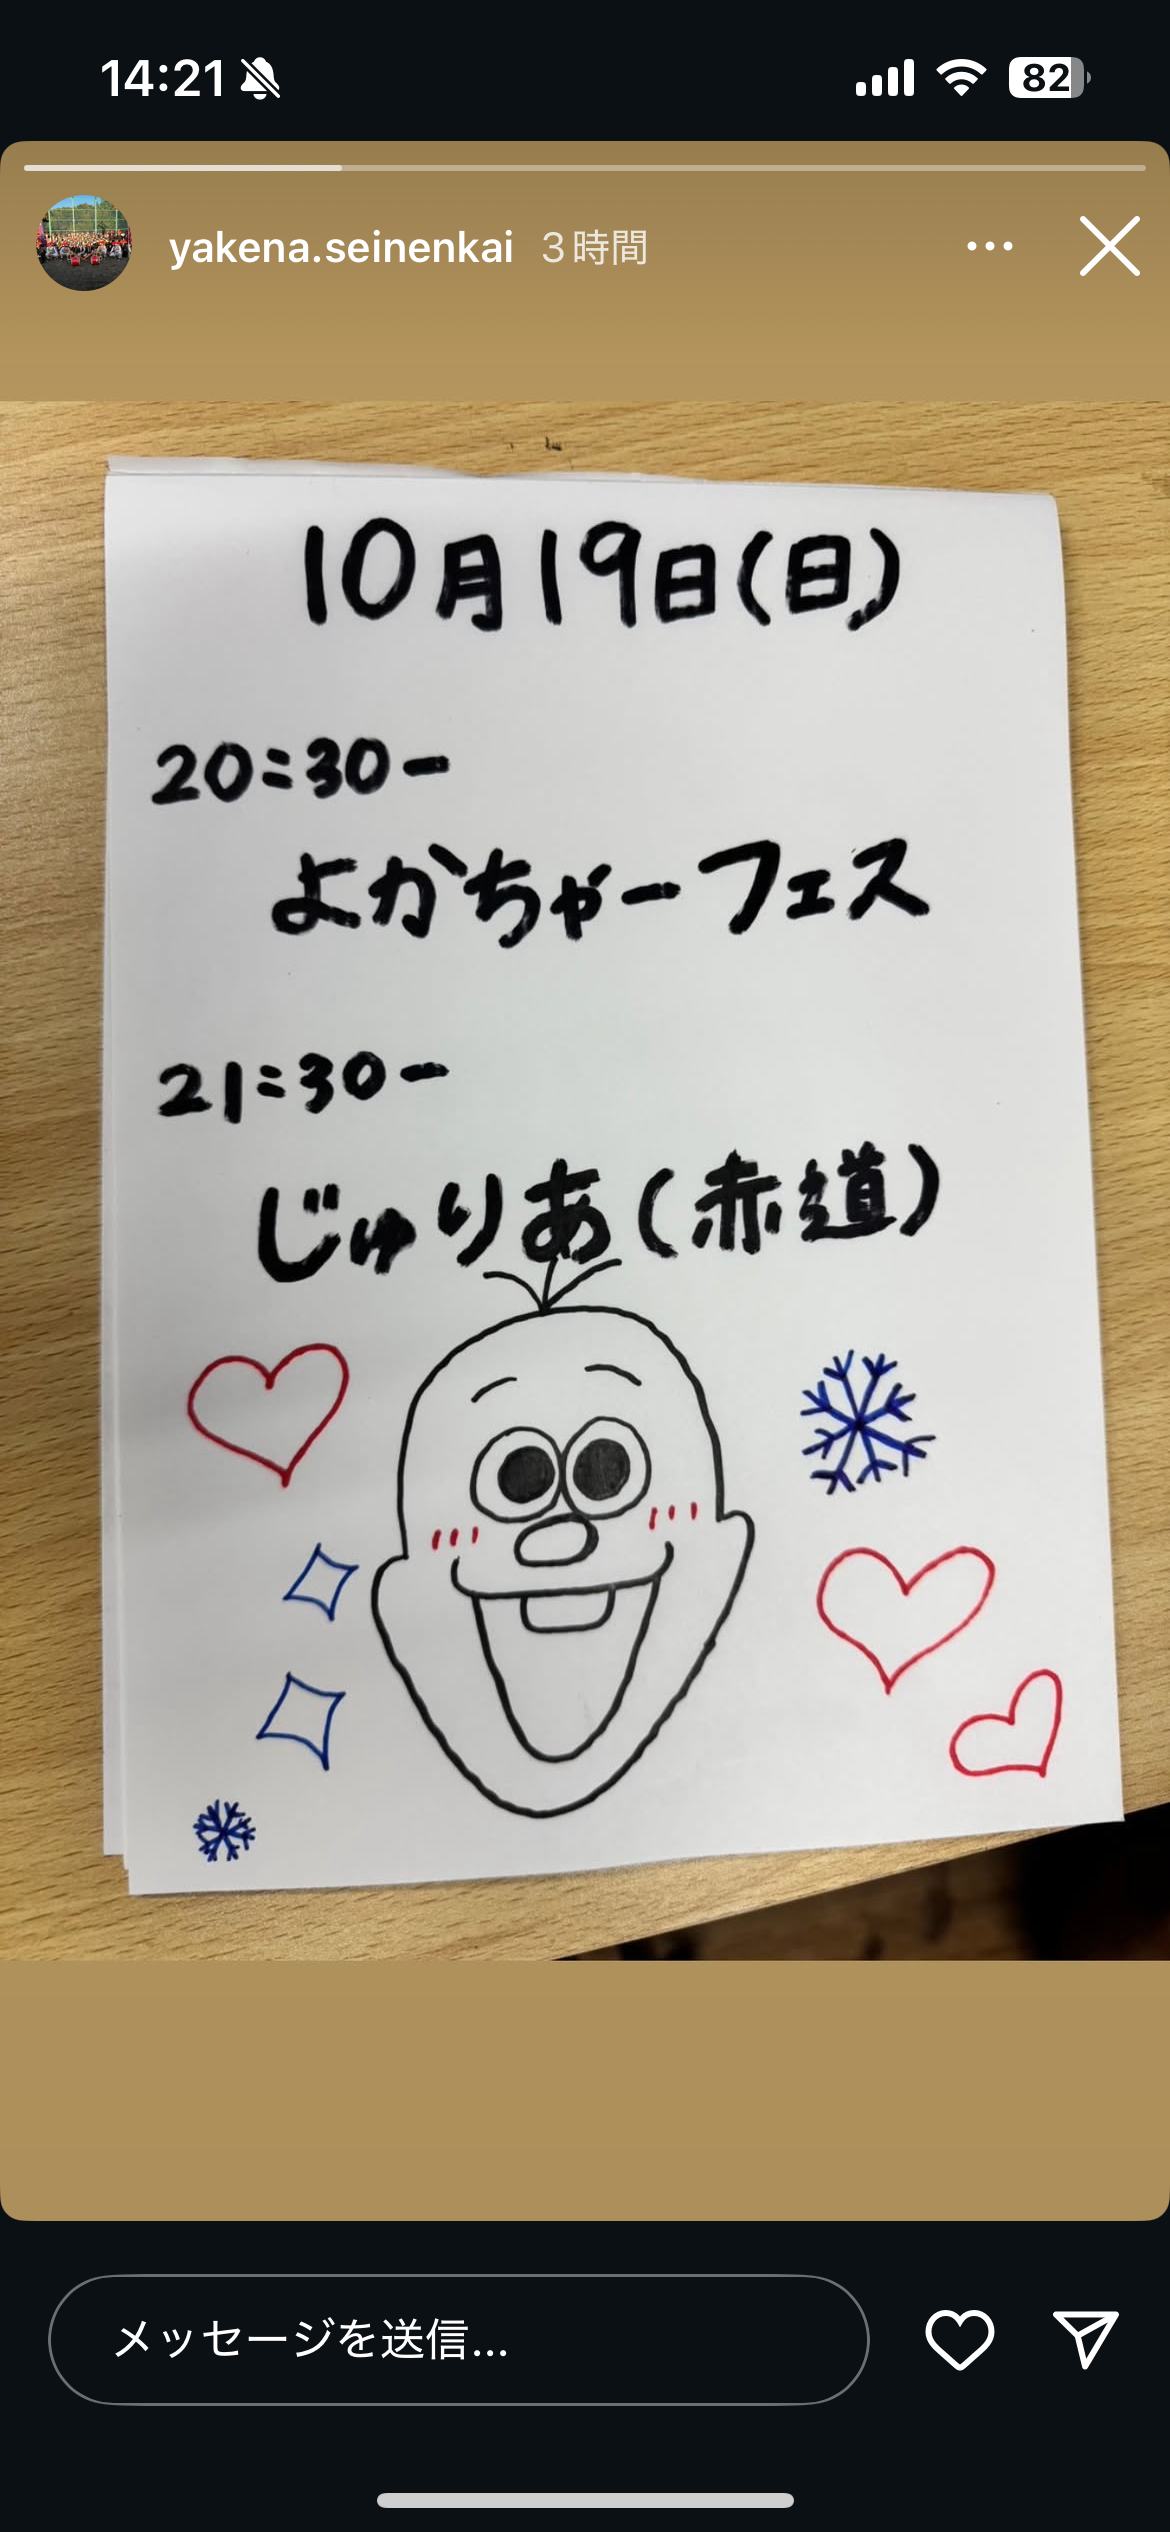 14:21
82
yakena.seinenkai 3時間
10月19日(日)
20:30-
よかちゃーフェス
21:30-
じゅりあ(赤道)
メッセージを送信...